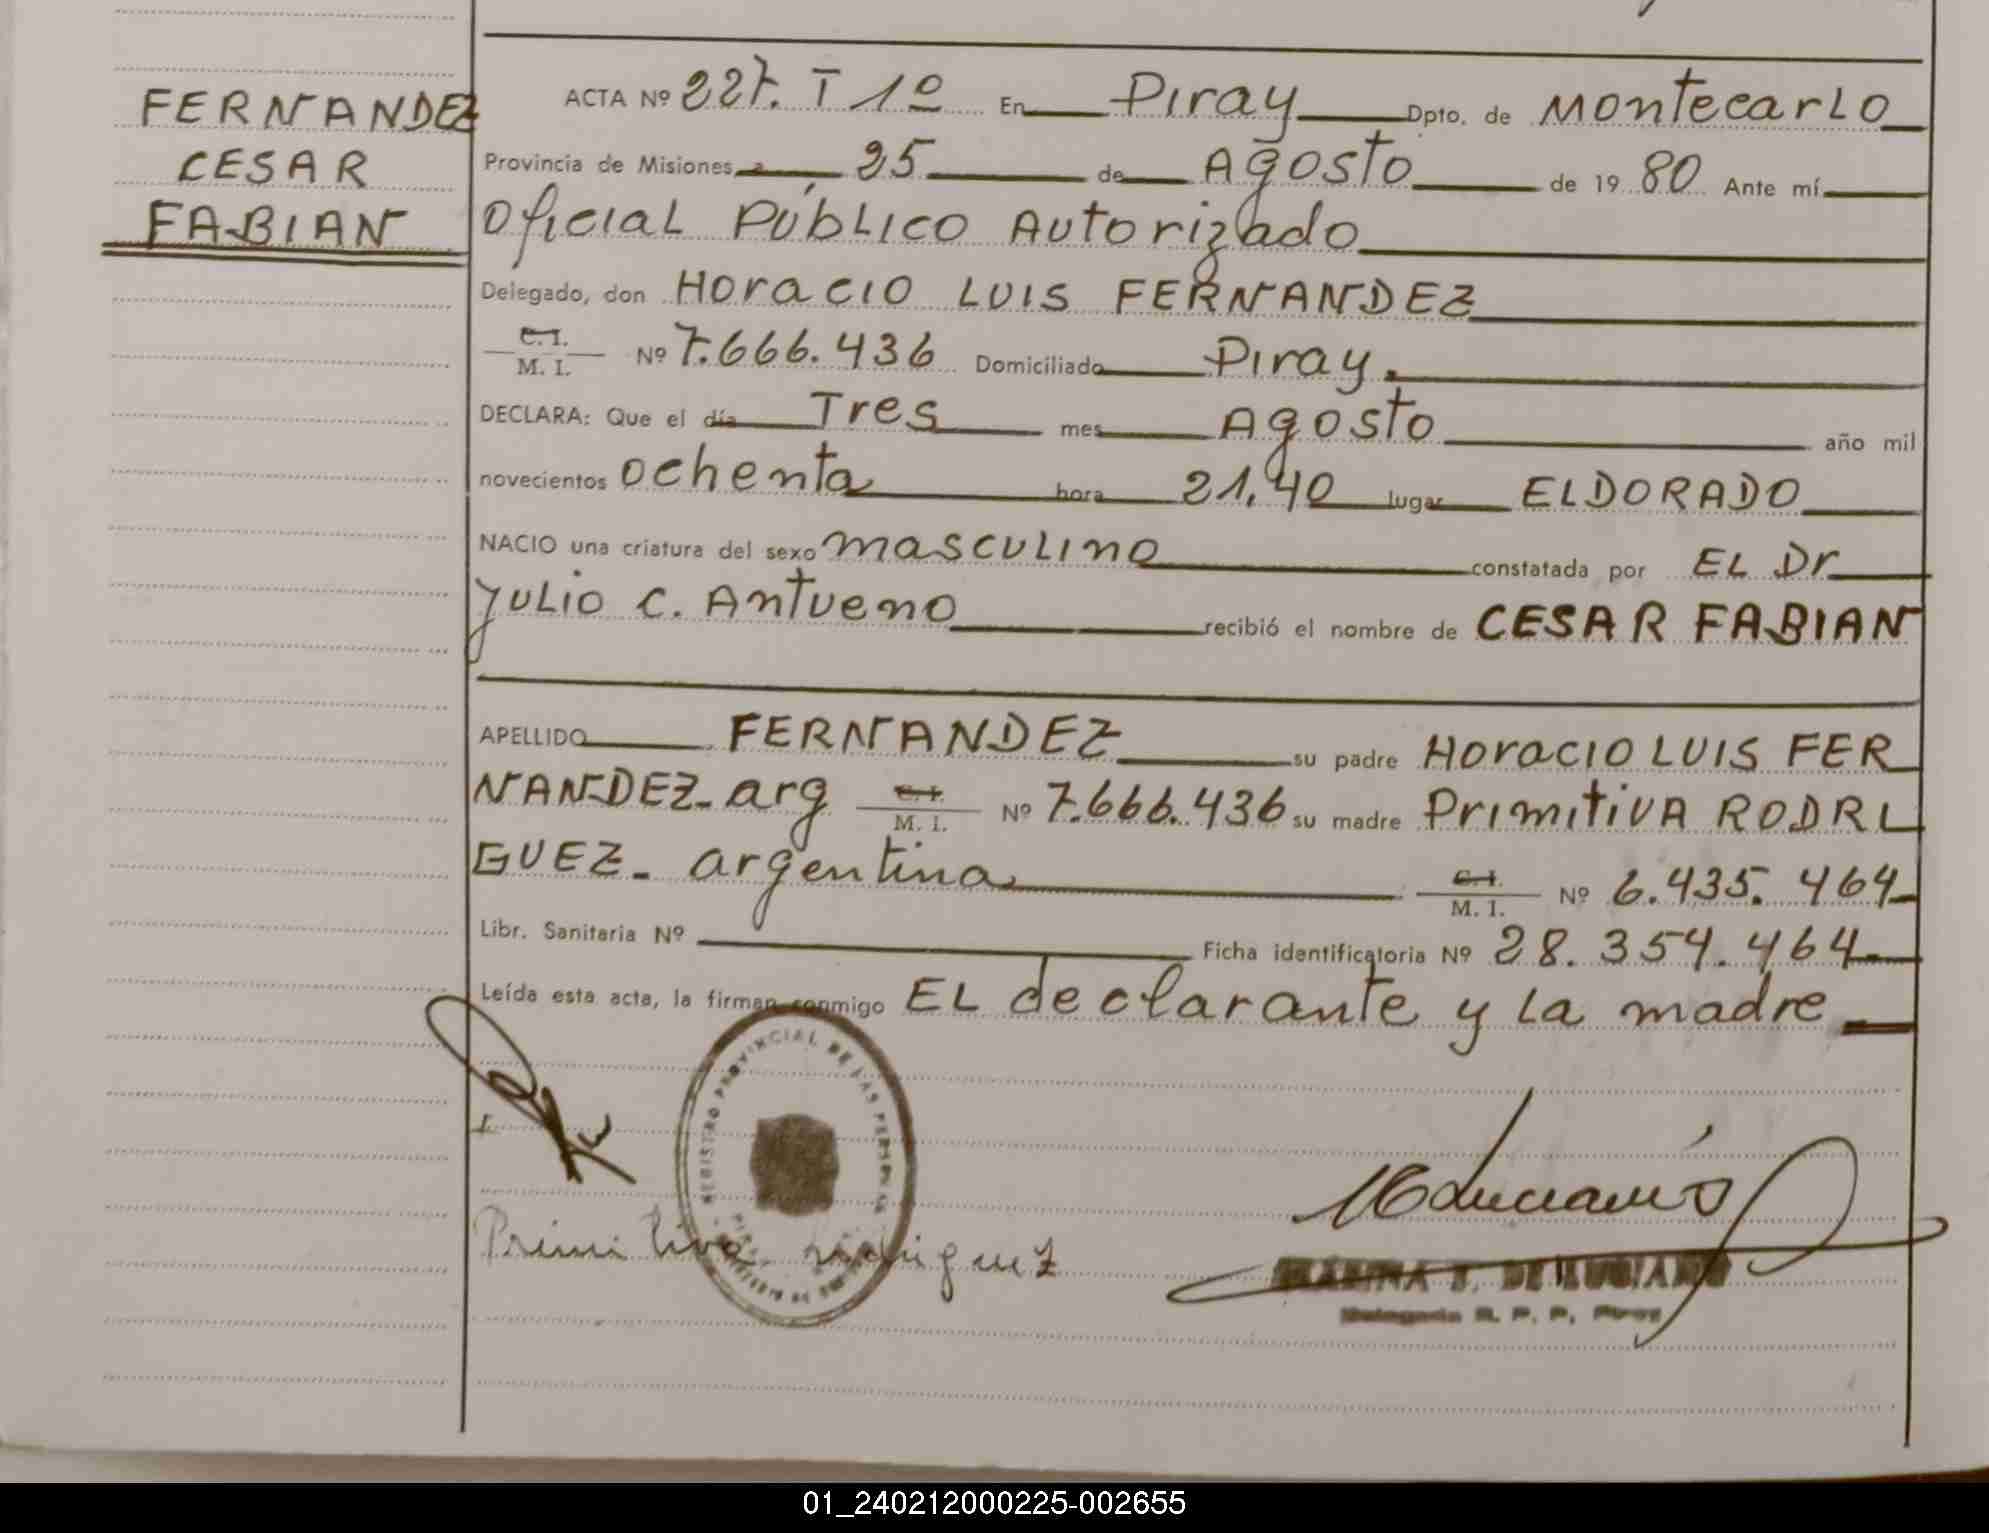 FERNANDEZ
CESAR
FABIAN
ACTA Nº 227. T 1º En Piray Dpto. de Montecarlo
Provincia de Misiones a 25 de Agosto de 1980 Ante mí
Oficial Público Autorizado
Delegado, don Horacio Luis FERNANDEZ
C. I.
M. I. Nº 7.666.436 Domiciliado Piray.
DECLARA: Que el día Tres mes Agosto año mil
novecientos ochenta hora 21.40 lugar ELDORADO
NACIO una criatura del sexo masculino constatada por EL Dr
Julio C. Antueno recibió el nombre de CESAR FABIAN
APELLIDO FERNANDEZ su padre Horacio LUIS FER
NANDEZ- arg C. I. M. I. Nº 7.666.436 su madre Primitiva RODRI
GUEZ- argentina C. I. M. I. Nº 6.435.464
Libr. Sanitaria Nº Ficha identificatoria Nº 28.354.464
Leída esta acta, la firman conmigo EL declarante y la madre
REGISTRO PROVINCIAL DE LAS PERSONAS
Primitiva rodriguez
Delegada R. P. P. Piray
01_240212000225-002655